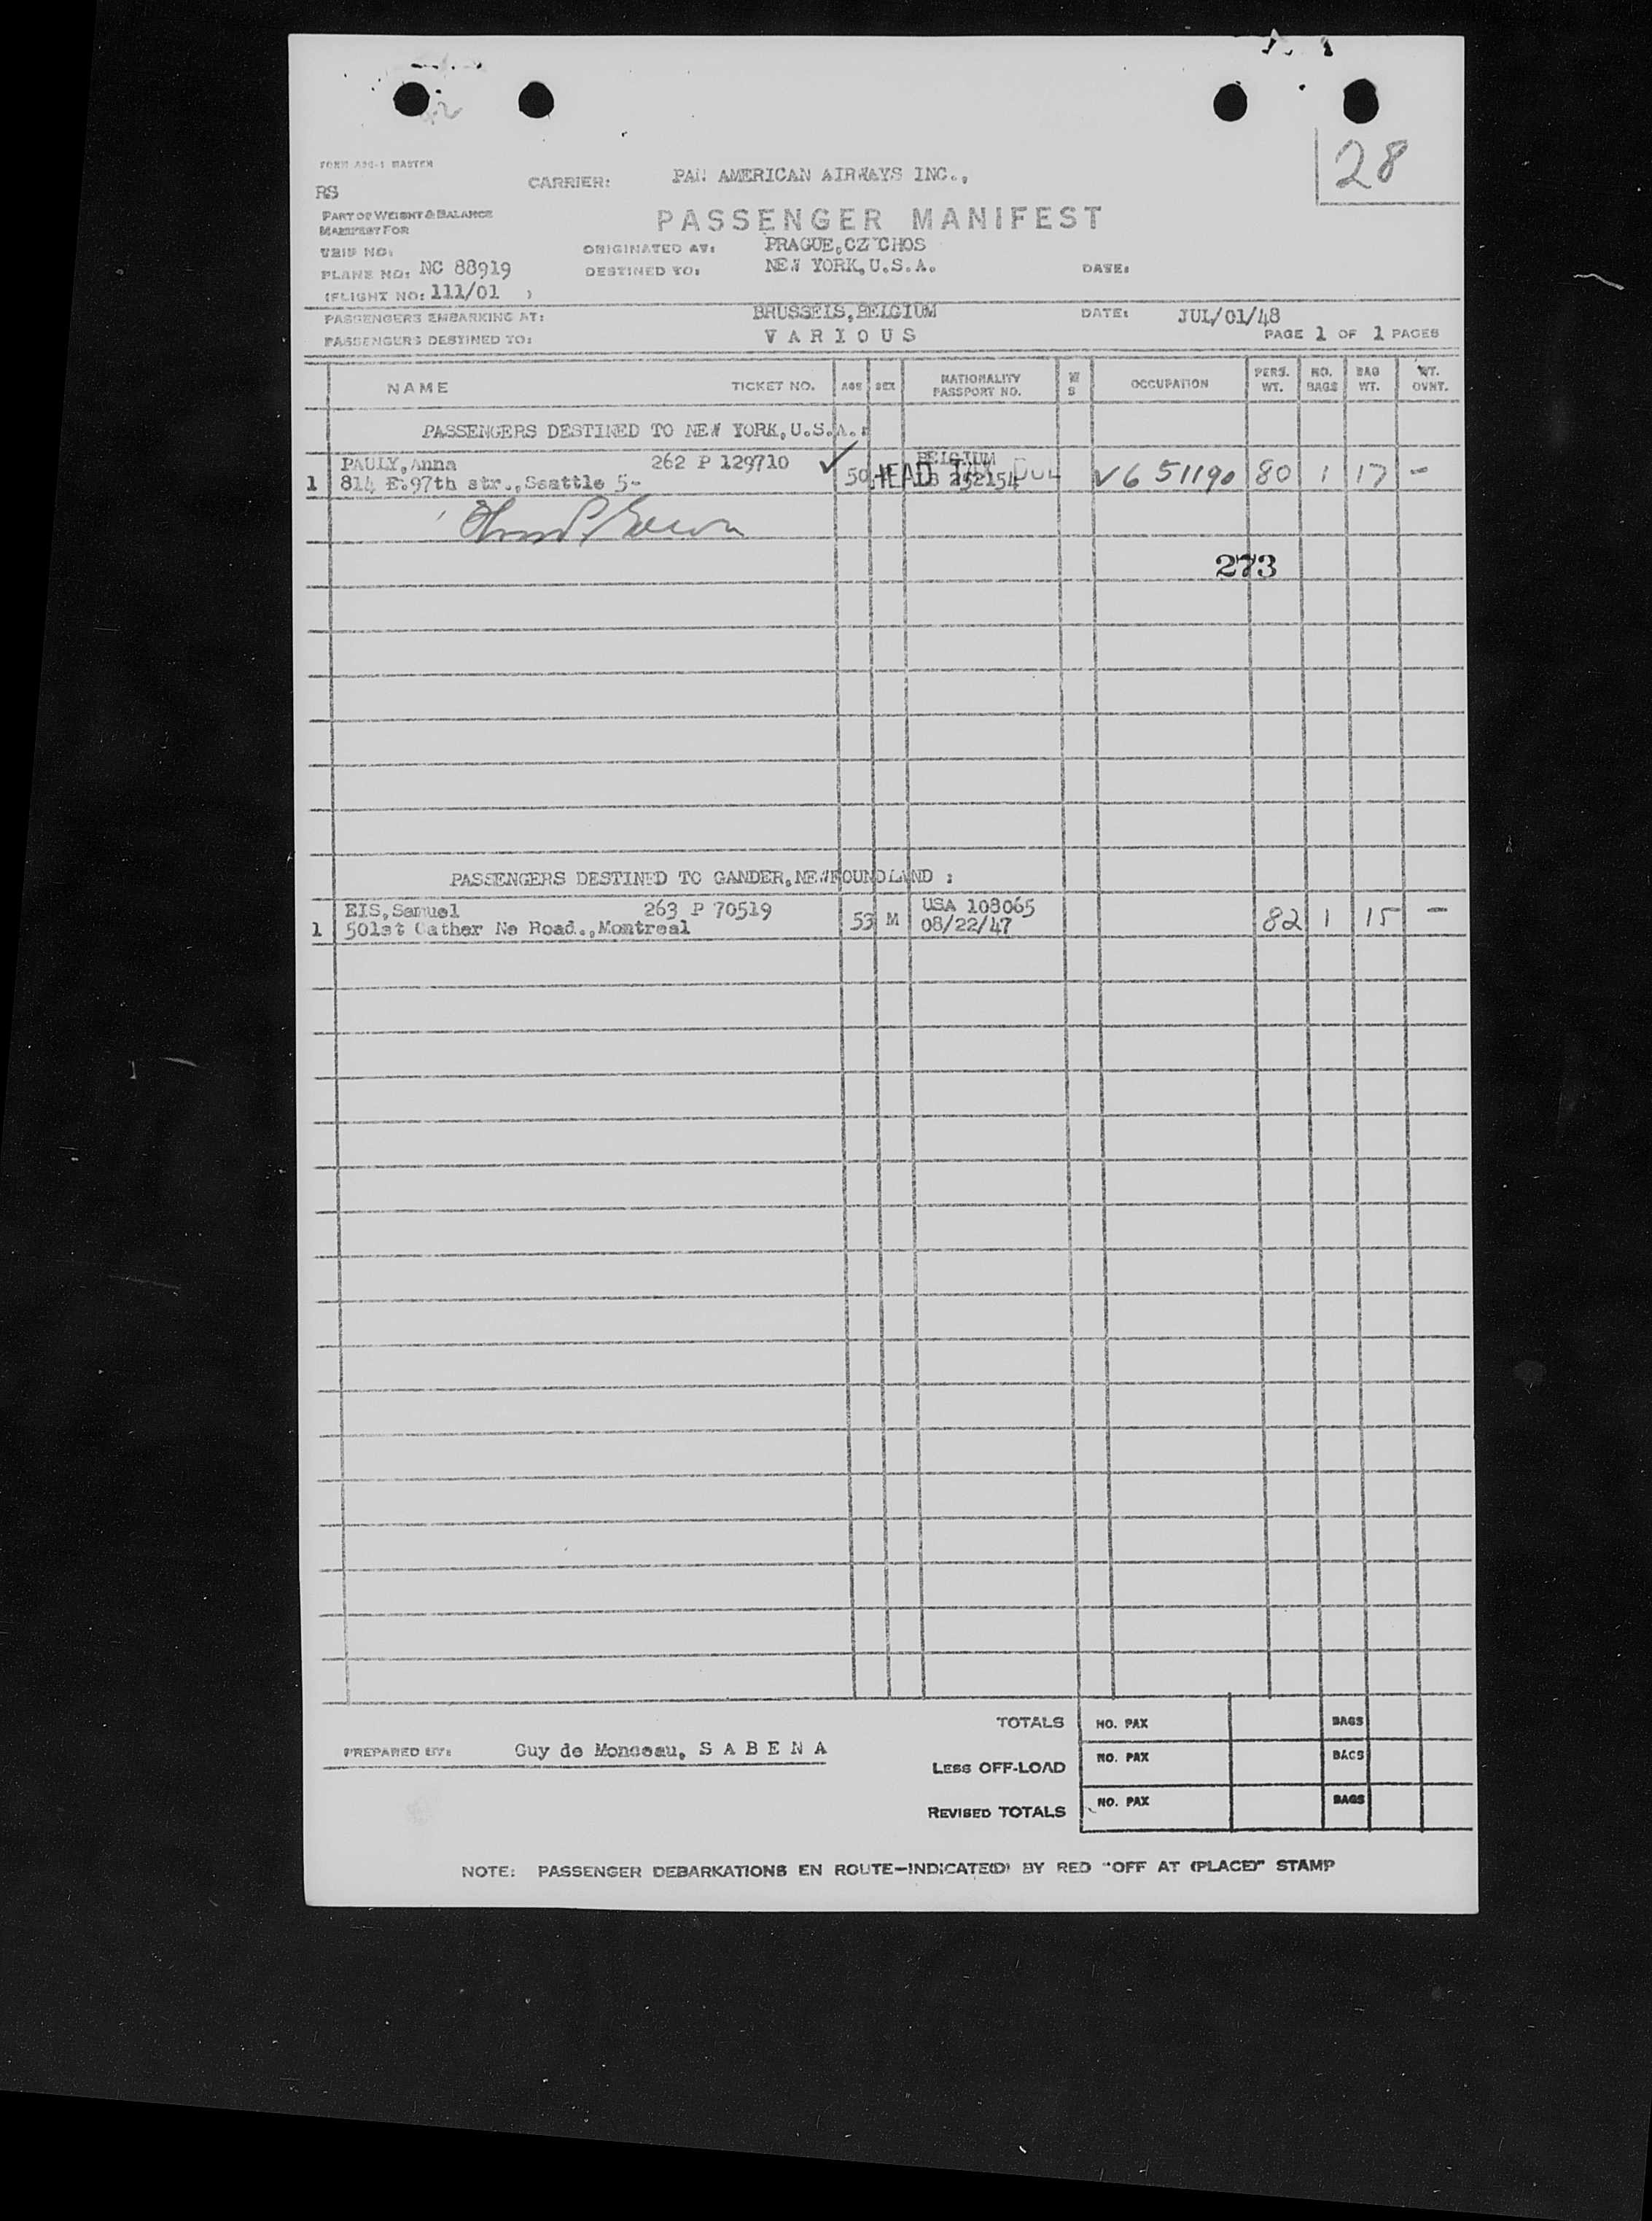 28
FORM A30-1 MASTER
RS
CARRIER: PAN AMERICAN AIRWAYS INC.,
PART OF WEIGHT & BALANCE
MANIFEST FOR
PASSENGER MANIFEST
TRIP NO:
ORIGINATED AT: PRAGUE,CZ CHOS
PLANE NO: NC 88919
DESTINED TO: NEW YORK,U.S.A.
DATE:
(FLIGHT NO: 111/01 )
PASSENGERS EMBARKING AT: BRUSSELS,BELGIUM DATE: JUL/01/48
PASSENGERS DESTINED TO: VARIOUS PAGE 1 OF 1 PAGES
NAME TICKET NO. AGE SEX NATIONALITY PASSPORT NO. W S OCCUPATION PERS. WT. NO. BAGS BAG WT. WT. OVNT.
PASSENGERS DESTINED TO NEW YORK,U.S.A.:
PAULY,Anna 262 P 129710 ✓ BELGIUM
1 814 E.97th str.,Seattle 5- 50 HEAD TAX 252154 V6 51190 80 1 17 -
273
PASSENGERS DESTINED TO GANDER,NEWFOUNDLAND :
EIS,Samuel 263 P 70519 USA 108065
1 501st Cather Ne Road.,Montreal 53 M 08/22/47 82 1 15 -
TOTALS NO. PAX BAGS
PREPARED BY: Guy de Monceau, SABENA
LESS OFF-LOAD NO. PAX BAGS
REVISED TOTALS NO. PAX BAGS
NOTE: PASSENGER DEBARKATIONS EN ROUTE—INDICATE(D) BY RED "OFF AT (PLACE)" STAMP